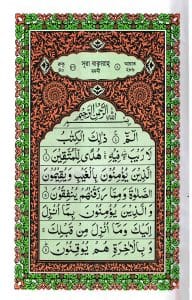 সূরা বাকারাহ্
بِسْمِ اللهِ الرَّحْمٰنِ الرَّحِيْمِ
الٓمّٓ ۚ ذٰلِكَ الْكِتٰبُ
لَا رَيْبَ ۛ فِيْهِ ۛ هُدًى لِّلْمُتَّقِيْنَ
الَّذِيْنَ يُؤْمِنُوْنَ بِالْغَيْبِ وَيُقِيْمُوْنَ
الصَّلٰوةَ وَمِمَّا رَزَقْنٰهُمْ يُنْفِقُوْنَ
وَالَّذِيْنَ يُؤْمِنُوْنَ بِمَا اُنْزِلَ
اِلَيْكَ وَمَا اُنْزِلَ مِنْ قَبْلِكَ
وَبِالْاٰخِرَةِ هُمْ يُوْقِنُوْنَ